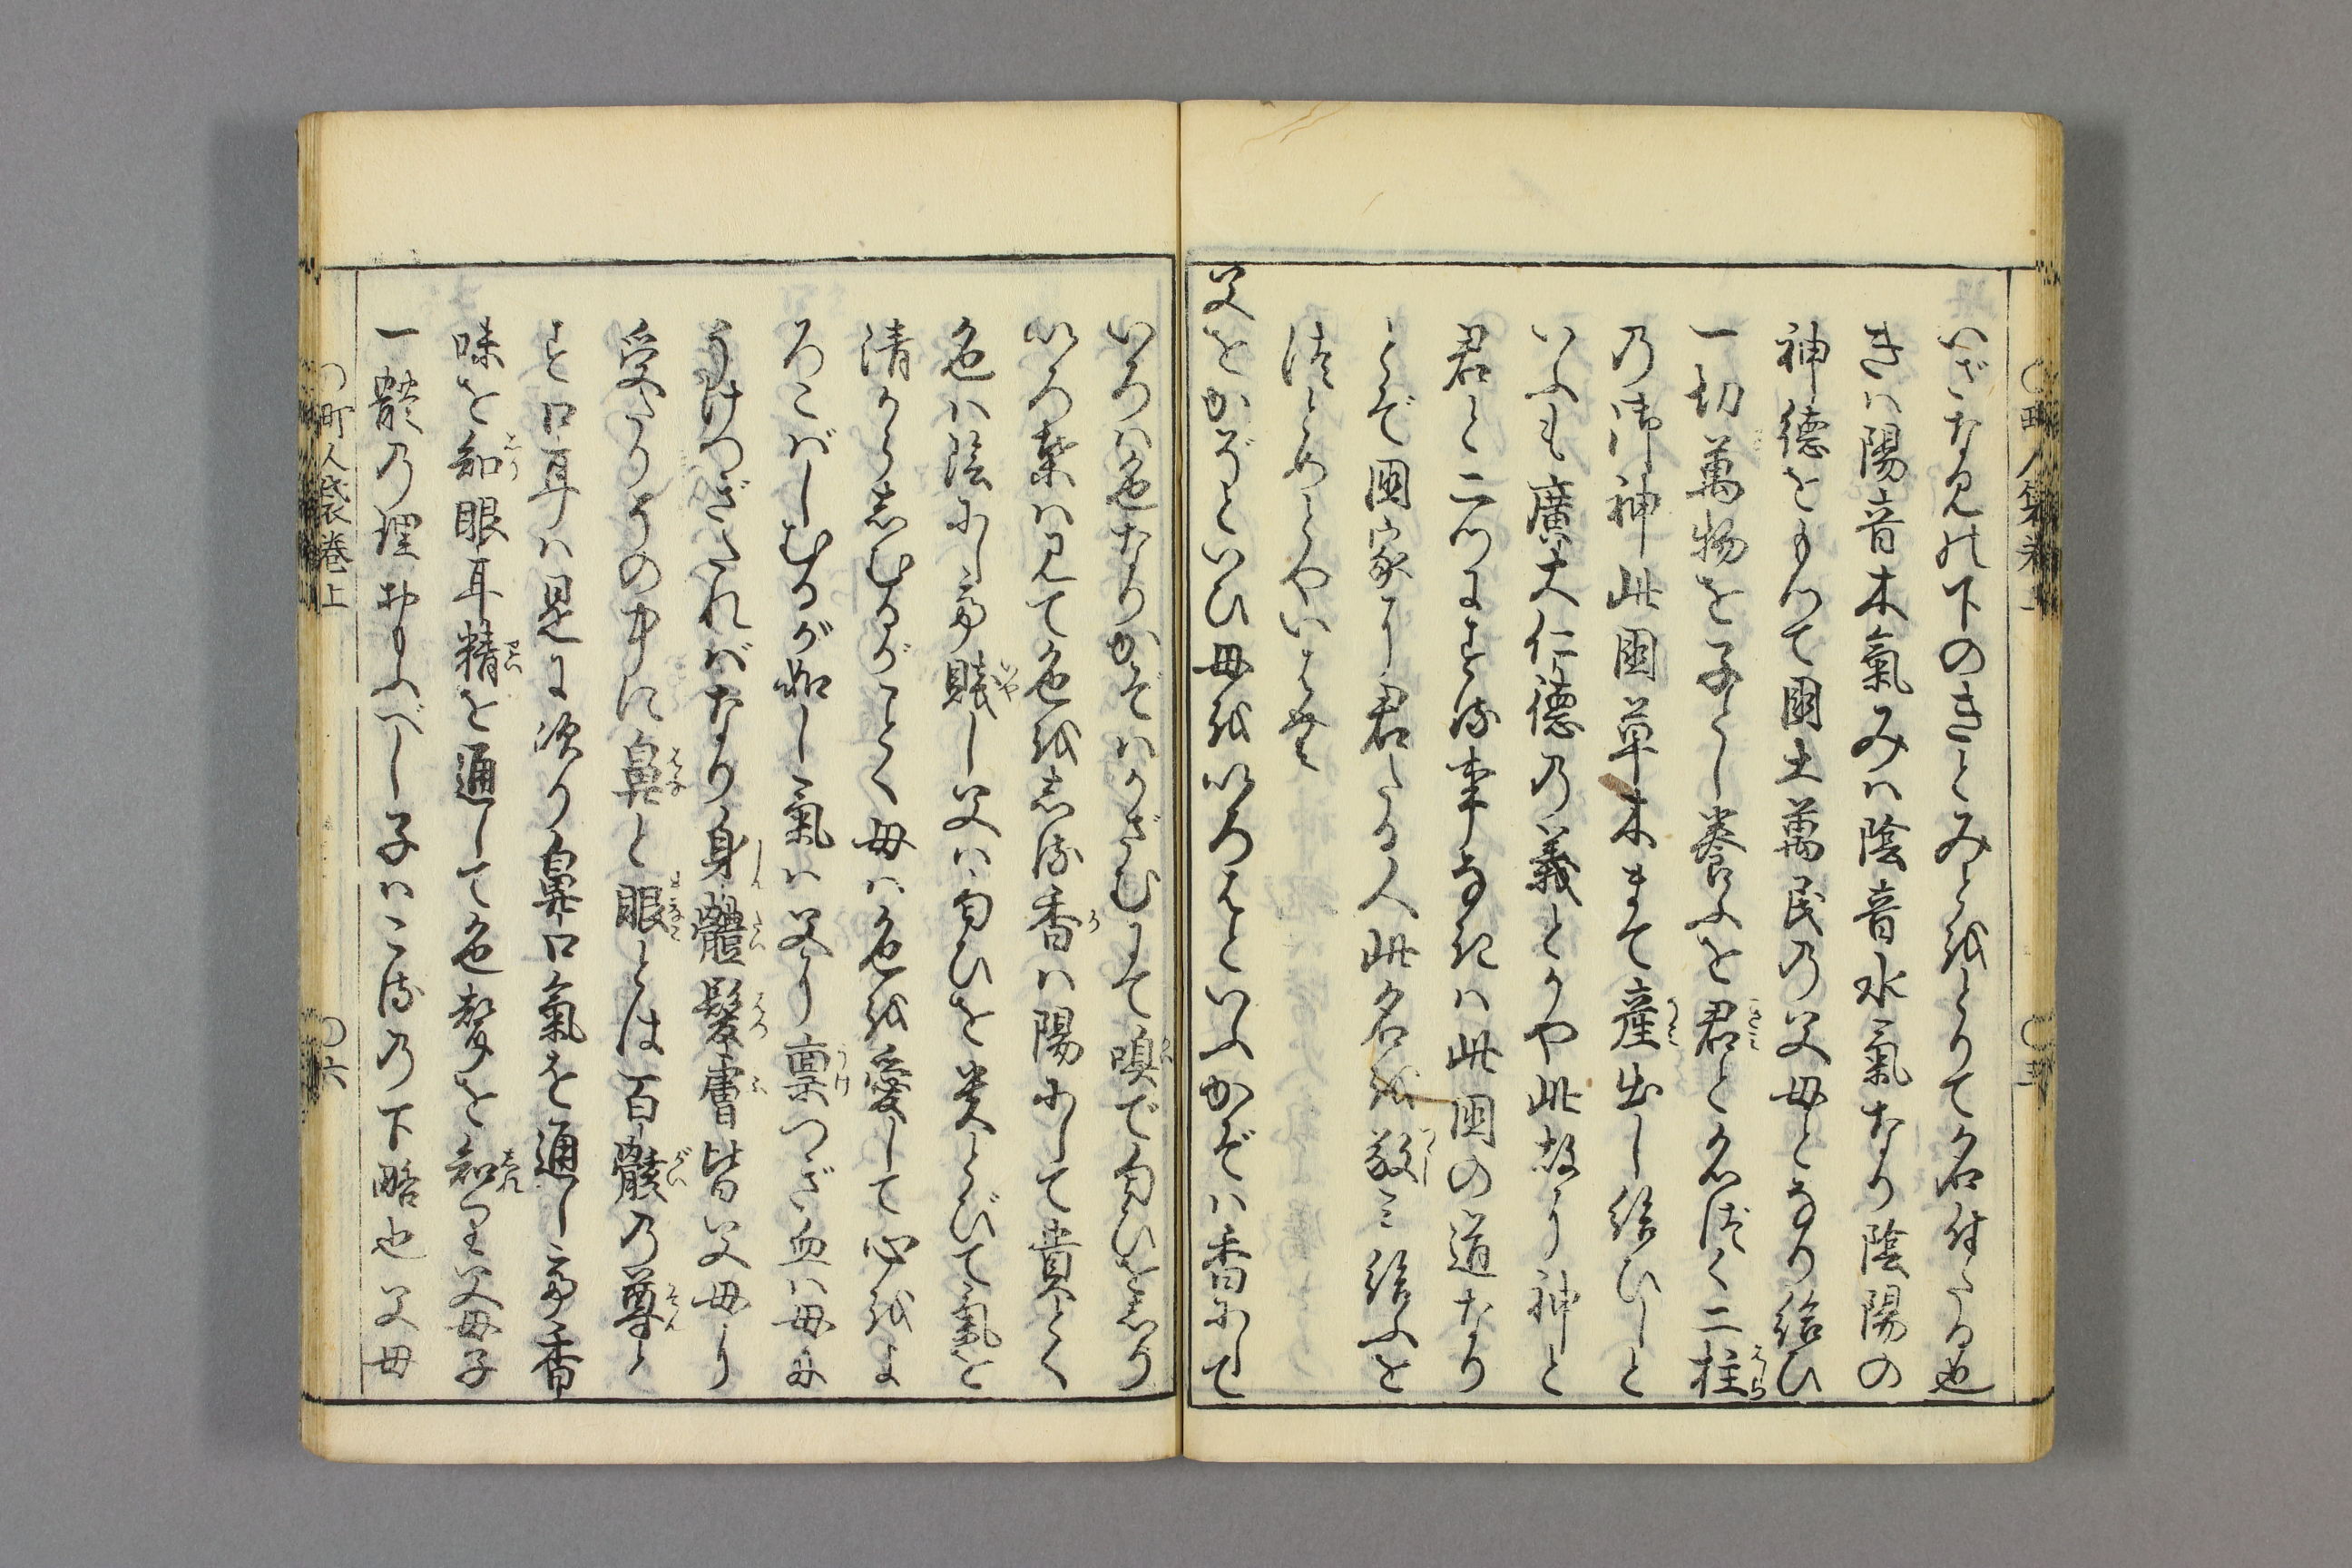 いざなみの下のきとみとをとりて名付たる也
きハ陽音木氣みハ陰音水氣なり陰陽の
神德をもつて國土萬民乃父母となり給ひ
一切萬物を子とし養ふを君と名づく二柱
乃御神此國草木まて産出し給ひしと
いふも廣大仁德乃義とかや此故に神と
君と二つにする事なきハ此國の道なり
とぞ國家に君たる人此名を敬ミ給ふを
法とめとやいはめ
父をかぞといひ母をいろはといふかぞハ香にして
いろハ色なりかぞハかざむにて嗅で匂ひをしり
いろ葉ハ見て色をしる香ハ陽にして貴とく
色ハ陰にして賤し父ハ匂ひを貴とびて氣を
清からしむるがことく母ハ色を愛して心をよ
ろこばしむるが如し氣ハ父より稟つぎ血ハ母よ
りうけつざれバなり身體髮膚皆父母より
受たりその中に鼻と眼とは百骸乃尊と
す口耳ハ是に次り鼻口氣を通して香
味を知眼耳精を通して色聲を知是父母子
一體乃理おもふべし子ハこる乃下略也父母
町人袋卷上
六